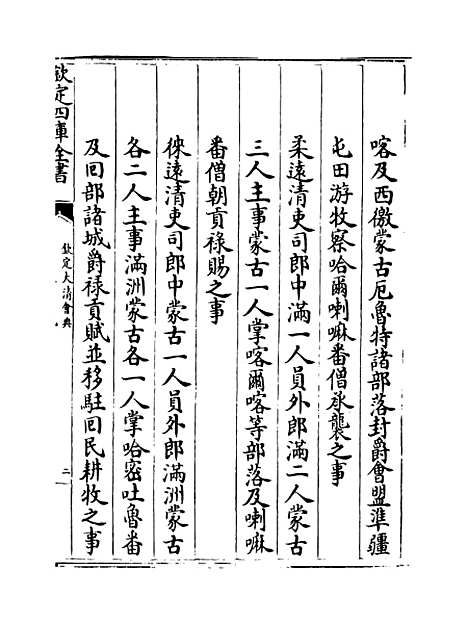 喀及西徼蒙古厄魯特諸部落封爵會盟準疆
屯田游牧察哈爾喇嘛番僧承襲之事
柔遠清吏司郎中滿一人員外郎滿二人蒙古
三人主事蒙古一人掌喀爾喀等部落及喇嘛
番僧朝貢祿賜之事
徠遠清吏司郎中蒙古一人員外郎滿洲蒙古
各二人主事滿洲蒙古各一人掌哈密吐魯番
及回部諸城爵祿貢賦並移駐回民耕牧之事
欽定四庫全書
欽定大清會典
二